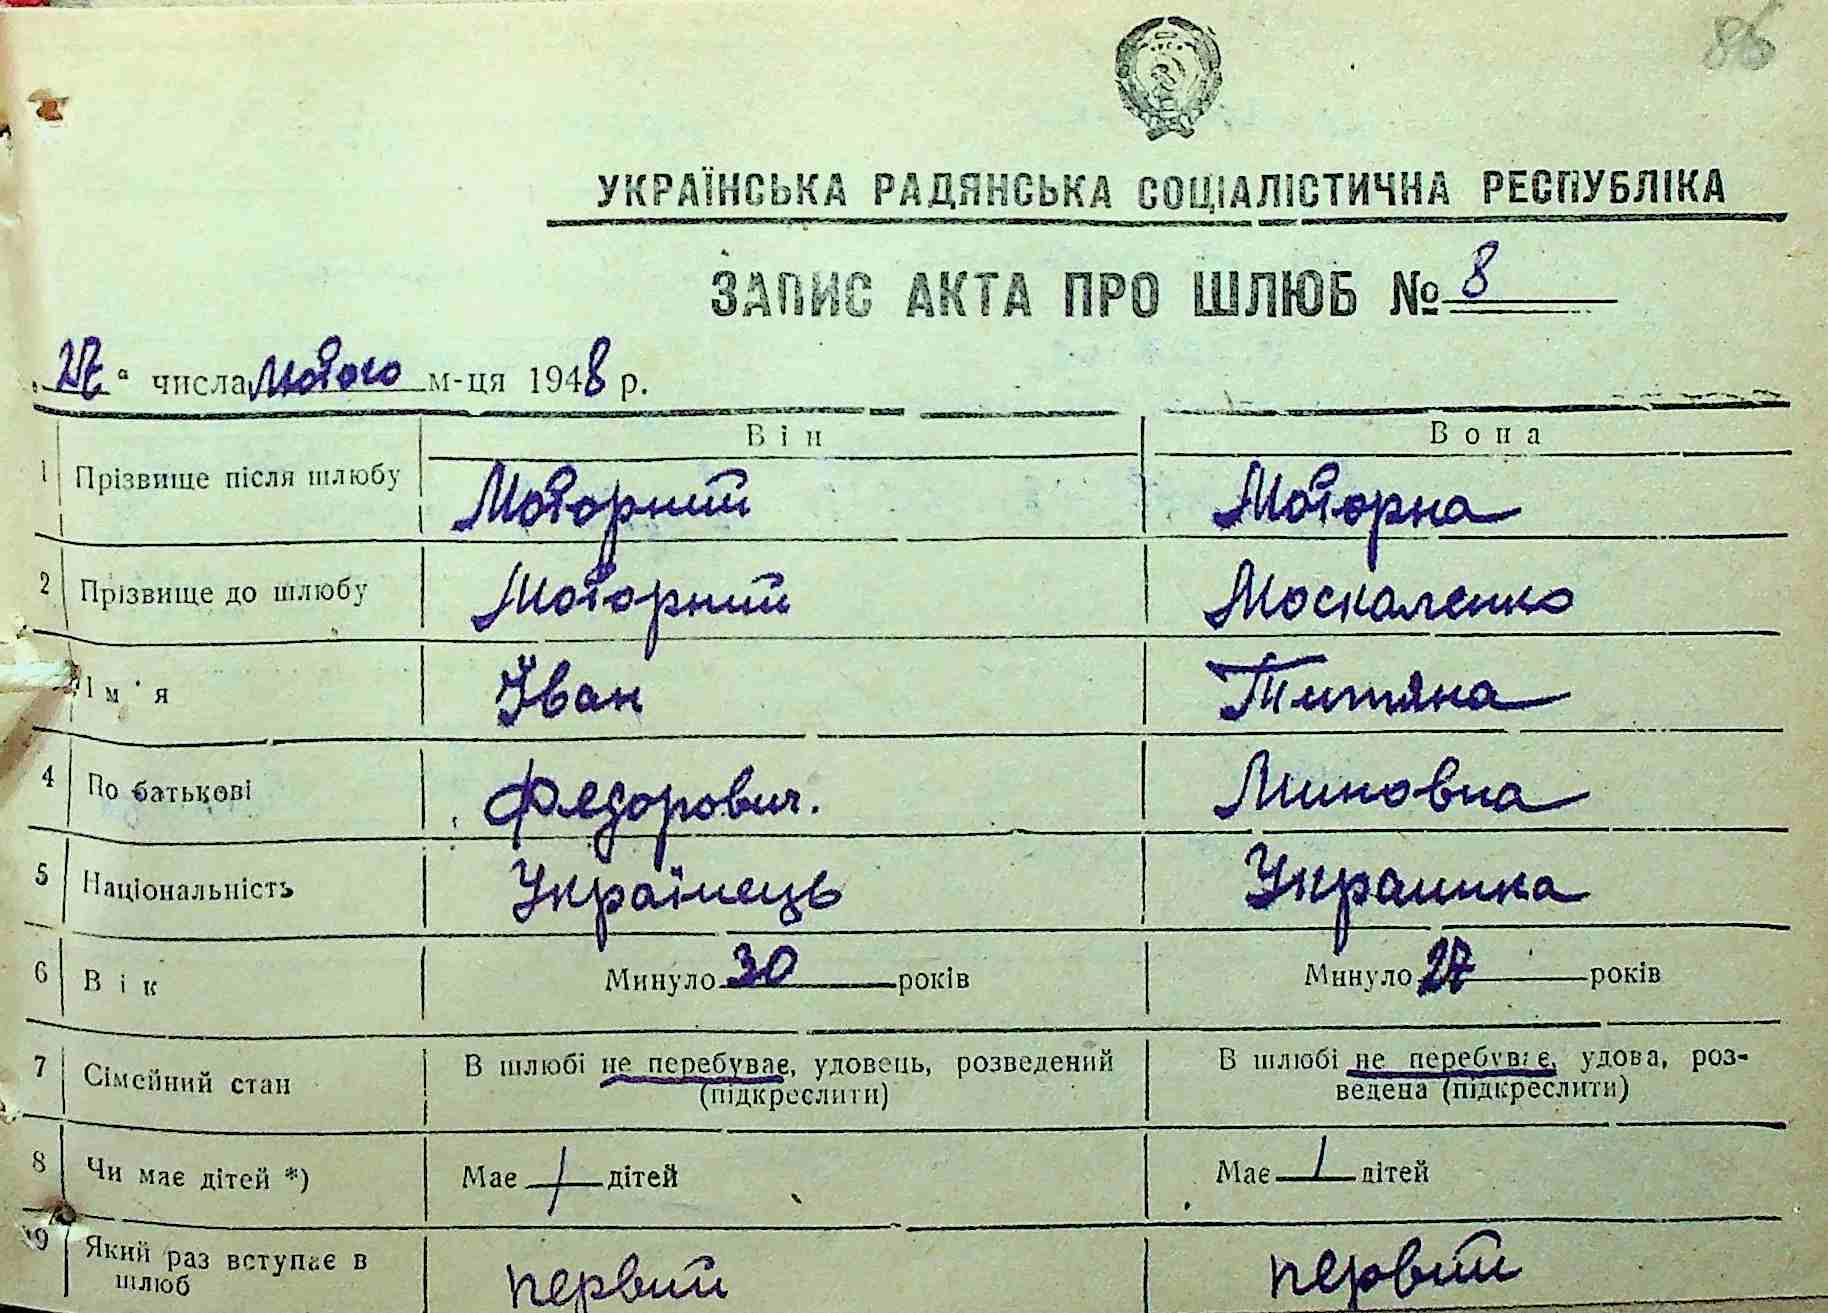 86
УКРАЇНСЬКА РАДЯНСЬКА СОЦІАЛІСТИЧНА РЕСПУБЛІКА
ЗАПИС АКТА ПРО ШЛЮБ № 8
„27“ числа лютого м-ця 1948 р.
Він Вона
1 Прізвище після шлюбу Моторний Моторна
2 Прізвище до шлюбу Моторний Москаленко
Ім'я Іван Титяна
4 По батькові Федорович. Миновна
5 Національність Українець Украинка
6 Вік Минуло 30 років Минуло 27 років
7 Сімейний стан В шлюбі не перебуває, удовець, розведений (підкреслити) В шлюбі не перебуває, удова, роз-
ведена (підкреслити)
8 Чи має дітей *) Має / дітей Має / дітей
9 Який раз вступає в шлюб первий первий